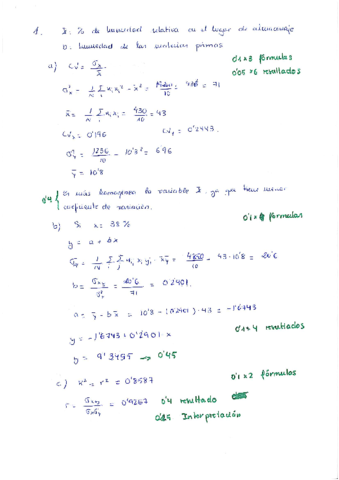 1. X: % de humedad relativa en el lugar de almacenaje
Y: humedad de las materias primas
a) CV = σx / x̄
0'1 x 3 fórmulas
0'05 x 6 resultados
σ²x = 1/N Σ ni xi² - x̄² = /10 - = 71
x̄ = 1/N Σ ni xi = 430/10 = 43
CVx = 0'196 CVy = 0'2443
σ²y = 1236/10 - 10'8² = 6'96
ȳ = 10'8
0'4 { Es más homogénea la variable X, ya que tiene menor
coeficiente de variación.
b) Si x = 38%
0'1 x fórmulas
y = a + bx
σxy = 1/N Σ Σ nij xi yj - x̄ȳ = 4850/10 - 43 · 10'8 = 20'6
b = σxy / σ²x = 20'6 / 71 = 0'2901
a = ȳ - bx̄ = 10'8 - (0'2901) · 43 = -1'6743
y = -1'6743 + 0'2901 · x
0'1 x 4 resultados
y = 9'3495 → 0'45
c) R² = r² = 0'8587
0'1 x 2 fórmulas
r = σxy / σxσy = 0'9267 0'4 resultado
0'25 Interpretación